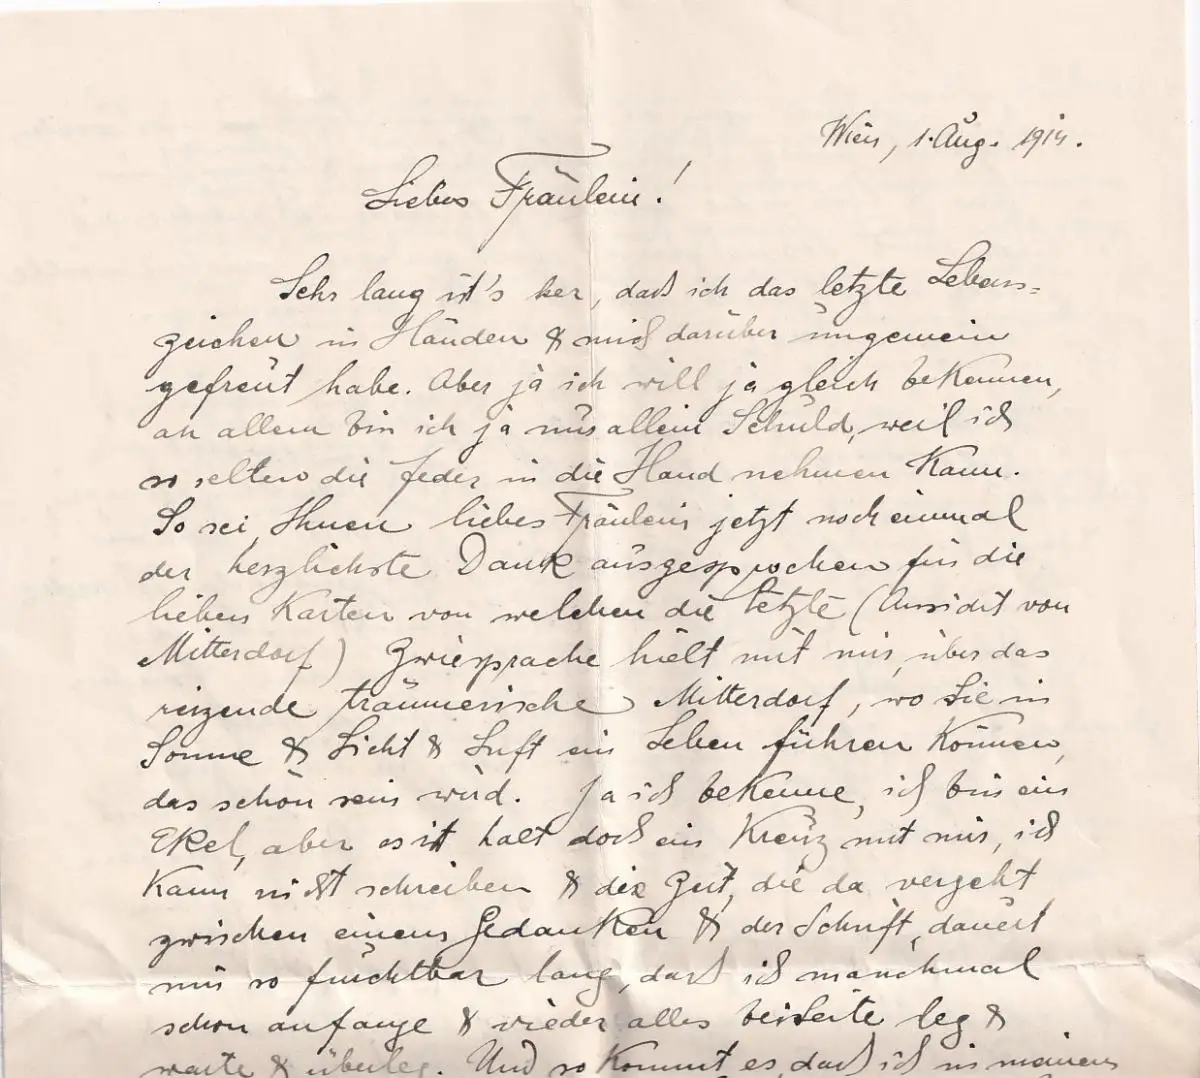 Wien, 1. Aug. 1914.
Liebes Fräulein!
Sehr lang ist's her, daß ich das letzte Lebens=
zeichen in Händen & mich darüber ungemein
gefreut habe. Aber ja ich will ja gleich bekennen,
an allem bin ich ja nur allein Schuld, weil ich
so selten die Feder in die Hand nehmen kann.
So sei Ihnen liebes Fräulein jetzt noch einmal
der herzlichste Dank ausgesprochen für die
lieben Karten von welchen die letzte (Ansicht von
Mitterdorf) Zwiesprache hielt mit mir, über das
reizende träumerische Mitterdorf, wo Sie in
Sonne & Licht & Luft ein Leben führen können,
das schön sein wird. Ja ich bekenne, ich bin ein
Ekel, aber es ist halt doch ein Kreuz mit mir, ich
kann nicht schreiben & die Zeit, die da vergeht
zwischen einem Gedanken & der Schrift, dauert
mir so furchtbar lang, daß ich manchmal
schon anfange & wieder alles beiseite leg &
warte & überleg. Und so kommt es, daß ich in meinem